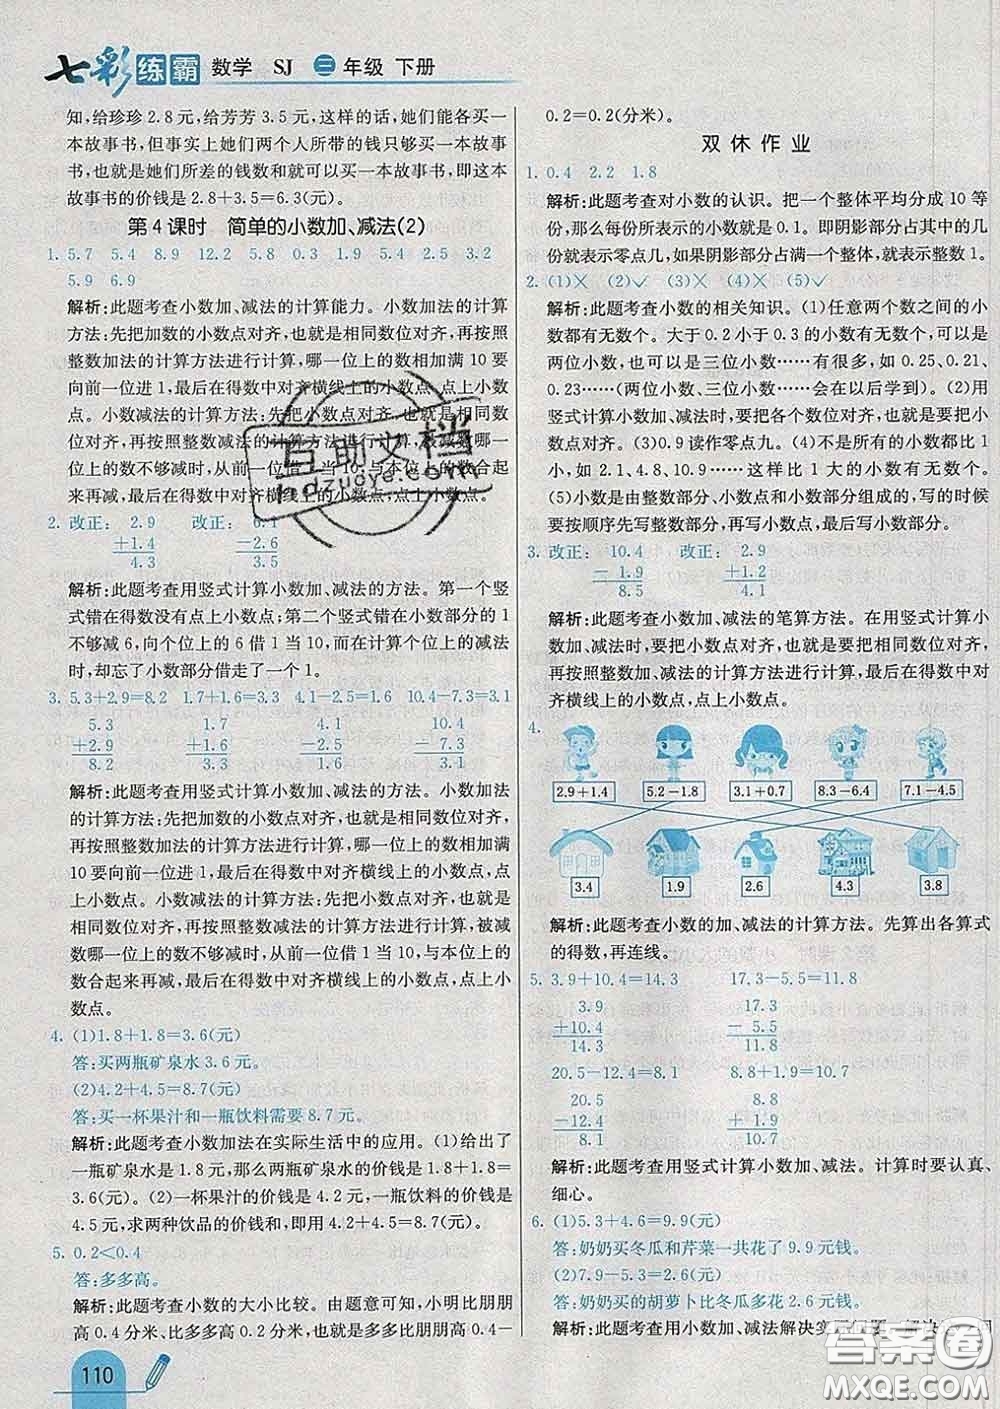 七彩练霸 数学 SJ 三年级 下册
知,给珍珍 2.8 元,给芳芳 3.5 元,这样的话,她们能各买一
本故事书,但事实上她们两个人所带的钱只够买一本故事
书,也就是她们所差的钱数和就可以买一本故事书,即这本
故事书的价钱是 2.8+3.5=6.3(元)。
第 4 课时 简单的小数加、减法(2)
1. 5.7 5.4 8.9 12.2 5.8 0.3 1.9 1.4 2.5 3.2
5.9 6.9
解析:此题考查小数加、减法的计算能力。小数加法的计算
方法:先把加数的小数点对齐,也就是相同数位对齐,再按照
整数加法的计算方法进行计算,哪一位上的数相加满 10 要
向前一位进 1,最后在得数中对齐横线上的小数点,点上小数
点。小数减法的计算方法:先把小数点对齐,也就是相同数
位对齐,再按照整数减法的计算方法进行计算,被减数哪一
位上的数不够减时,从前一位借 1 当 10,与本位上的数合起
来再减,最后在得数中对齐横线上的小数点,点上小数点。
2. 改正: 2.9 改正: 6.1
+1.4 -2.6
4.3 3.5
解析:此题考查用竖式计算小数加、减法的方法。第一个竖
式错在得数没有点上小数点;第二个竖式错在小数部分的 1
不够减 6,向个位上的 6 借 1 当 10,而在计算个位上的减法
时,却忘了小数部分借走了一个 1。
3. 5.3+2.9=8.2 1.7+1.6=3.3 4.1-2.5=1.6 10.4-7.3=3.1
5.3 1.7 4.1 10.4
+2.9 +1.6 -2.5 - 7.3
8.2 3.3 1.6 3.1
解析:此题考查用竖式计算小数加、减法的方法。小数加法
的计算方法:先把小数点对齐,也就是相同数位对齐,再按照
整数加法的计算方法进行计算,哪一位上的数相加满
10 要向前一位进 1,最后在得数中对齐横线上的小数点,点
上小数点。小数减法的计算方法:先把小数点对齐,也就是
相同数位对齐,再按照整数减法的计算方法进行计算,被减
数哪一位上的数不够减时,向前一位借 1 当 10,与本位上的
数合起来再减,最后在得数中对齐横线上的小数点,点上小
数点。
4. (1)1.8+1.8=3.6(元)
答:买两瓶矿泉水 3.6 元。
(2)4.2+4.5=8.7(元)
答:买一杯果汁和一瓶饮料需要 8.7 元。
解析:此题考查小数加法在实际生活中的应用。(1)给出了
一瓶矿泉水是 1.8 元,那么两瓶矿泉水的价钱是 1.8+1.8=
3.6(元)。(2)一杯果汁的价钱是 4.2 元,一瓶饮料的价钱是
4.5 元,求两种饮品的价钱和,即用 4.2+4.5=8.7(元)。
5. 0.2<0.4
答:多多高。
解析:此题考查小数的大小比较。由题意可知,小明比朋朋
高 0.4 分米、比多多高 0.2 分米,也就是多多比朋朋高 0.4-
110
0.2=0.2(分米)。
双休作业
1. 0.4 2.2 1.8
解析:此题考查对小数的认识。把一个整体平均分成 10 等
份,那么每份所表示的小数就是 0.1。即阴影部分占其中的几
份就表示零点几,如果阴影部分占满一个整体,就表示整数 1。
2. (1)× (2)√ (3)× (4)× (5)√
解析:此题考查小数的相关知识。(1)任意两个数之间的小
数都有无数个。大于 0.2 小于 0.3 的小数有无数个,可以是
两位小数,也可以是三位小数……有很多,如 0.25、0.21、
0.23……(两位小数、三位小数……会在以后学到)。(2)用
竖式计算小数加、减法时,要把各个数位对齐,也就是要把小
数点对齐。(3)0.9 读作零点九。(4)不是所有的小数都比 1
小,如 2.1、4.8、10.9……这样比 1 大的小数有无数个。
(5)小数是由整数部分、小数点和小数部分组成的,写的时候
要按顺序先写整数部分,再写小数点,最后写小数部分。
3. 改正: 10.4 改正: 2.9
- 1.9 +1.2
8.5 4.1
解析:此题考查小数加、减法的笔算方法。在用竖式计算小数
加、减法时,要把小数点对齐,也就是要把相同数位对齐,
再按照整数加、减法的计算方法进行计算,最后在得数中对
齐横线上的小数点,点上小数点。
4.
2.9+1.4 5.2-1.8 3.1+0.7 8.3-6.4 7.1-4.5
3.4 1.9 2.6 4.3 3.8
解析:此题考查小数的加、减法的计算方法。先算出各算式
的得数,再连线。
5. 3.9+10.4=14.3 17.3-5.5=11.8
3.9 17.3
+10.4 - 5.5
14.3 11.8
20.5-12.4=8.1 8.8+1.9=10.7
20.5 8.8
-12.4 + 1.9
8.1 10.7
解析:此题考查用竖式计算小数加、减法。计算时要认真、
细心。
6. (1)5.3+4.6=9.9(元)
答:奶奶买冬瓜和芹菜一共花了 9.9 元钱。
(2)7.9-5.3=2.6(元)
答:奶奶买的胡萝卜比冬瓜多花 2.6 元钱。
解析:此题考查用小数加、减法解决实际问题。解决
互助文档
hdzuoye.com
答案圈
MXQE.COM